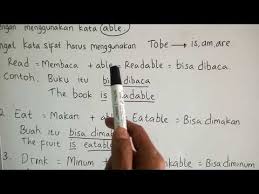 engan menggunakan kata able.
ngal kata sifat harus menggunakan Tobe → is, am, are
Read = Membaca + able = Readable = bisa dibaca.
Contoh: Buku itu bisa dibaca
The book is readable
2. Eat = Makan + able = Eatable = Bisa dimakan
Buah itu bisa dimakan
The fruit is eatable
3. Drink = Minum nkable = Bisa diminum